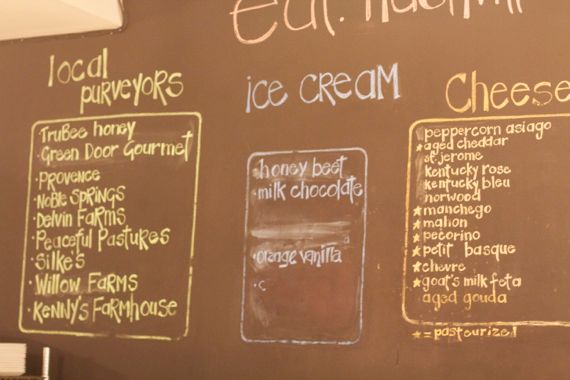 eat.
local
purveyors
• TruBee honey
• Green Door Gourmet
• Provence
• Noble Springs
• Delvin Farms
• Peaceful Pastures
• Silke's
• Willow Farms
• Kenny's Farmhouse
ice cream
• honey beet
• milk chocolate
• orange vanilla
• c
Cheese
peppercorn asiago
★ aged cheddar
st. jerome
kentucky rose
kentucky bleu
norwood
★ manchego
★ mahon
★ pecorino
★ petit basque
★ chevre
★ goat's milk feta
aged gouda
★ = pasteurized